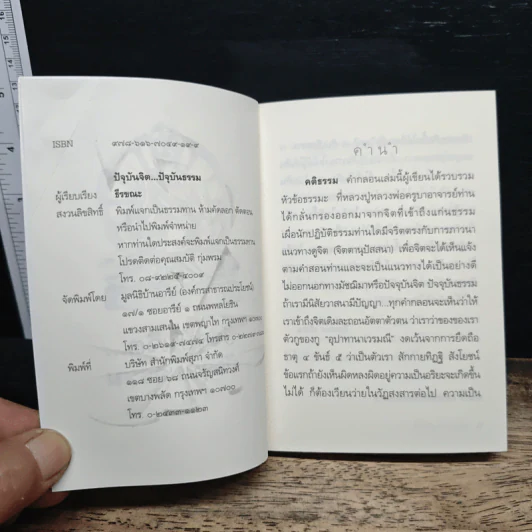 ISBN ๙๗๘-๖๑๖-๗๐๔๙-๑๙-๙
ปัจุบันจิต...ปัจุบันธรรม
ผู้เรียบเรียง ธีรขณะ
สงวนลิขสิทธิ์ พิมพ์แจกเป็นธรรมทาน ห้ามคัดลอก ตัดตอน
หรือนำไปพิมพ์จำหน่าย
หากท่านใดประสงค์จะพิมพ์แจกเป็นธรรมทาน
โปรดติดต่อคุณสมบัติ กุ่มพรม
โทร. ๐๘-๙๒๒๕-๔๐๐๙
จัดพิมพ์โดย มูลนิธิบ้านอารีย์ (องค์การสาธารณประโยชน์)
๑๗/๑ ซอยอารีย์ ๑ ถนนพหลโยธิน
แขวงสามเสนใน เขตพญาไท กรุงเทพฯ ๑๐๔๐๐
โทร. ๐-๒๖๑๙-๗๔๗๔ โทรสาร
พิมพ์ที่ บริษัท สำนักพิมพ์สุภา จำกัด
๑๑๘ ซอย ๖๘ ถนนจรัญสนิทวงศ์
เขตบางพลัด กรุงเทพฯ ๑๐๗๐๐
โทร. ๐-๒๔๓๓-๑๑๒๓
คำนำ
คติธรรม คำกลอนเล่มนี้ผู้เขียนได้รวบรวม
หัวข้อธรรมะ ที่หลวงปู่หลวงพ่อครูบาอาจารย์ท่าน
ได้กลั่นกรองออกมาจากจิตที่เข้าถึงแก่นธรรม
เพื่อนักปฏิบัติธรรมท่านใดมีจริตตรงกับการภาวนา
แนวทางดูจิต (จิตตานุปัสสนา) เพื่อจิตจะได้เห็นแจ้ง
ตามคำสอนท่านและจะเป็นแนวทางได้เป็นอย่างดี
ไม่ออกนอกทางมัชฌิมาหรือปัจุบันจิต ปัจุบันธรรม
ถ้าเรามีนิสัยวาสนามีปัญญา...ทุกคำกลอนจะเห็นว่าให้
เราเข้าถึงจิตเดิมละถอนอัตตาตัวตน ว่าเราว่าของของเรา
ตัวกูของกู "อุปาทานาเวรมณี" งดเว้นจากการยึดถือ
ธาตุ ๔ ขันธ์ ๕ ว่าเป็นตัวเรา สักกายทิฏฐิ สังโยชน์
ข้อแรกถ้ายังเห็นผิดหลงผิดอยู่ความเป็นอริยะจะเกิดขึ้น
ไม่ได้ ก็ต้องเวียนว่ายในวัฏสงสารต่อไป ความเป็น